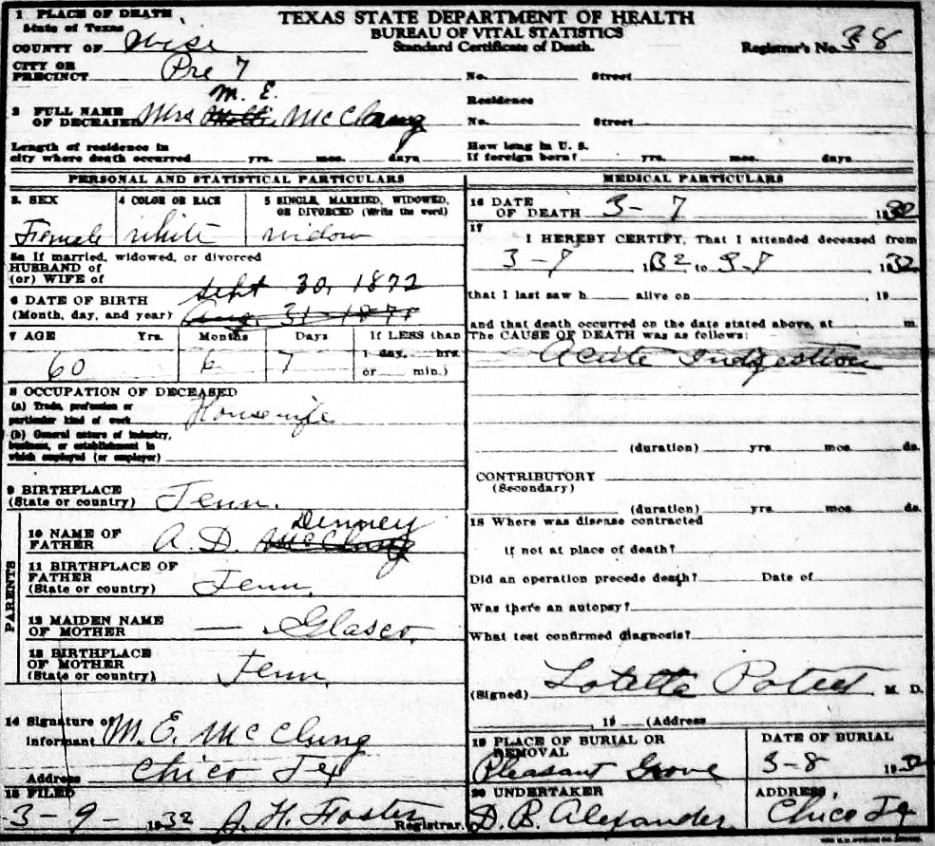 TEXAS STATE DEPARTMENT OF HEALTH
BUREAU OF VITAL STATISTICS
Standard Certificate of Death.
Registrar's No. 38
1 PLACE OF DEATH
State of Texas
COUNTY OF Wise
CITY OR
PRECINCT Pre 7
No. Street
2 FULL NAME
OF DECEASED Mrs Mollie M. E. McClung
Residence
No. Street
Length of residence in
city where death occurred yrs. mos. days
How long in U. S.
If foreign born? yrs. mos. days
PERSONAL AND STATISTICAL PARTICULARS
3. SEX
Female
4 COLOR OR RACE
white
5 SINGLE, MARRIED, WIDOWED,
OR DIVORCED (Write the word)
widow
5a If married, widowed, or divorced
HUSBAND of
(or) WIFE of
6 DATE OF BIRTH
(Month, day, and year)
Sept 30, 1872
Aug. 31
7 AGE Yrs. Months Days
60 6 7
If LESS than
1 day, hrs.
or min.)
8 OCCUPATION OF DECEASED
(a) Trade, profession or
particular kind of work Housewife
(b) General nature of industry,
business, or establishment in
which employed (or employer)
9 BIRTHPLACE
(State or country) Tenn.
PARENTS
10 NAME OF
FATHER A. D. McClung Denney
11 BIRTHPLACE OF
FATHER
(State or country) Tenn.
12 MAIDEN NAME
OF MOTHER — Glasco
13 BIRTHPLACE
OF MOTHER
(State or country) Tenn.
14 Signature of
Informant M. E. McClung
Address Chico Tex
15 FILED
3-9- 1932 J. H. Foster Registrar.
MEDICAL PARTICULARS
16 DATE
OF DEATH 3- 7 1932
17
I HEREBY CERTIFY, That I attended deceased from
3-7 1932 to 3-7 1932
that I last saw h alive on , 19
and that death occurred on the date stated above, at m.
The CAUSE OF DEATH was as follows:
Acute Indigestion
(duration) yrs. mos. ds.
CONTRIBUTORY
(Secondary)
(duration) yrs. mos. ds.
18 Where was disease contracted
if not at place of death?
Did an operation precede death? Date of
Was there an autopsy?
What test confirmed diagnosis?
(Signed) Lotetta Poteet M. D.
, 19 (Address
19 PLACE OF BURIAL OR
REMOVAL
Pleasant Grove
DATE OF BURIAL
3-8 1932
20 UNDERTAKER
D. B. Alexander
ADDRESS,
Chico Tx